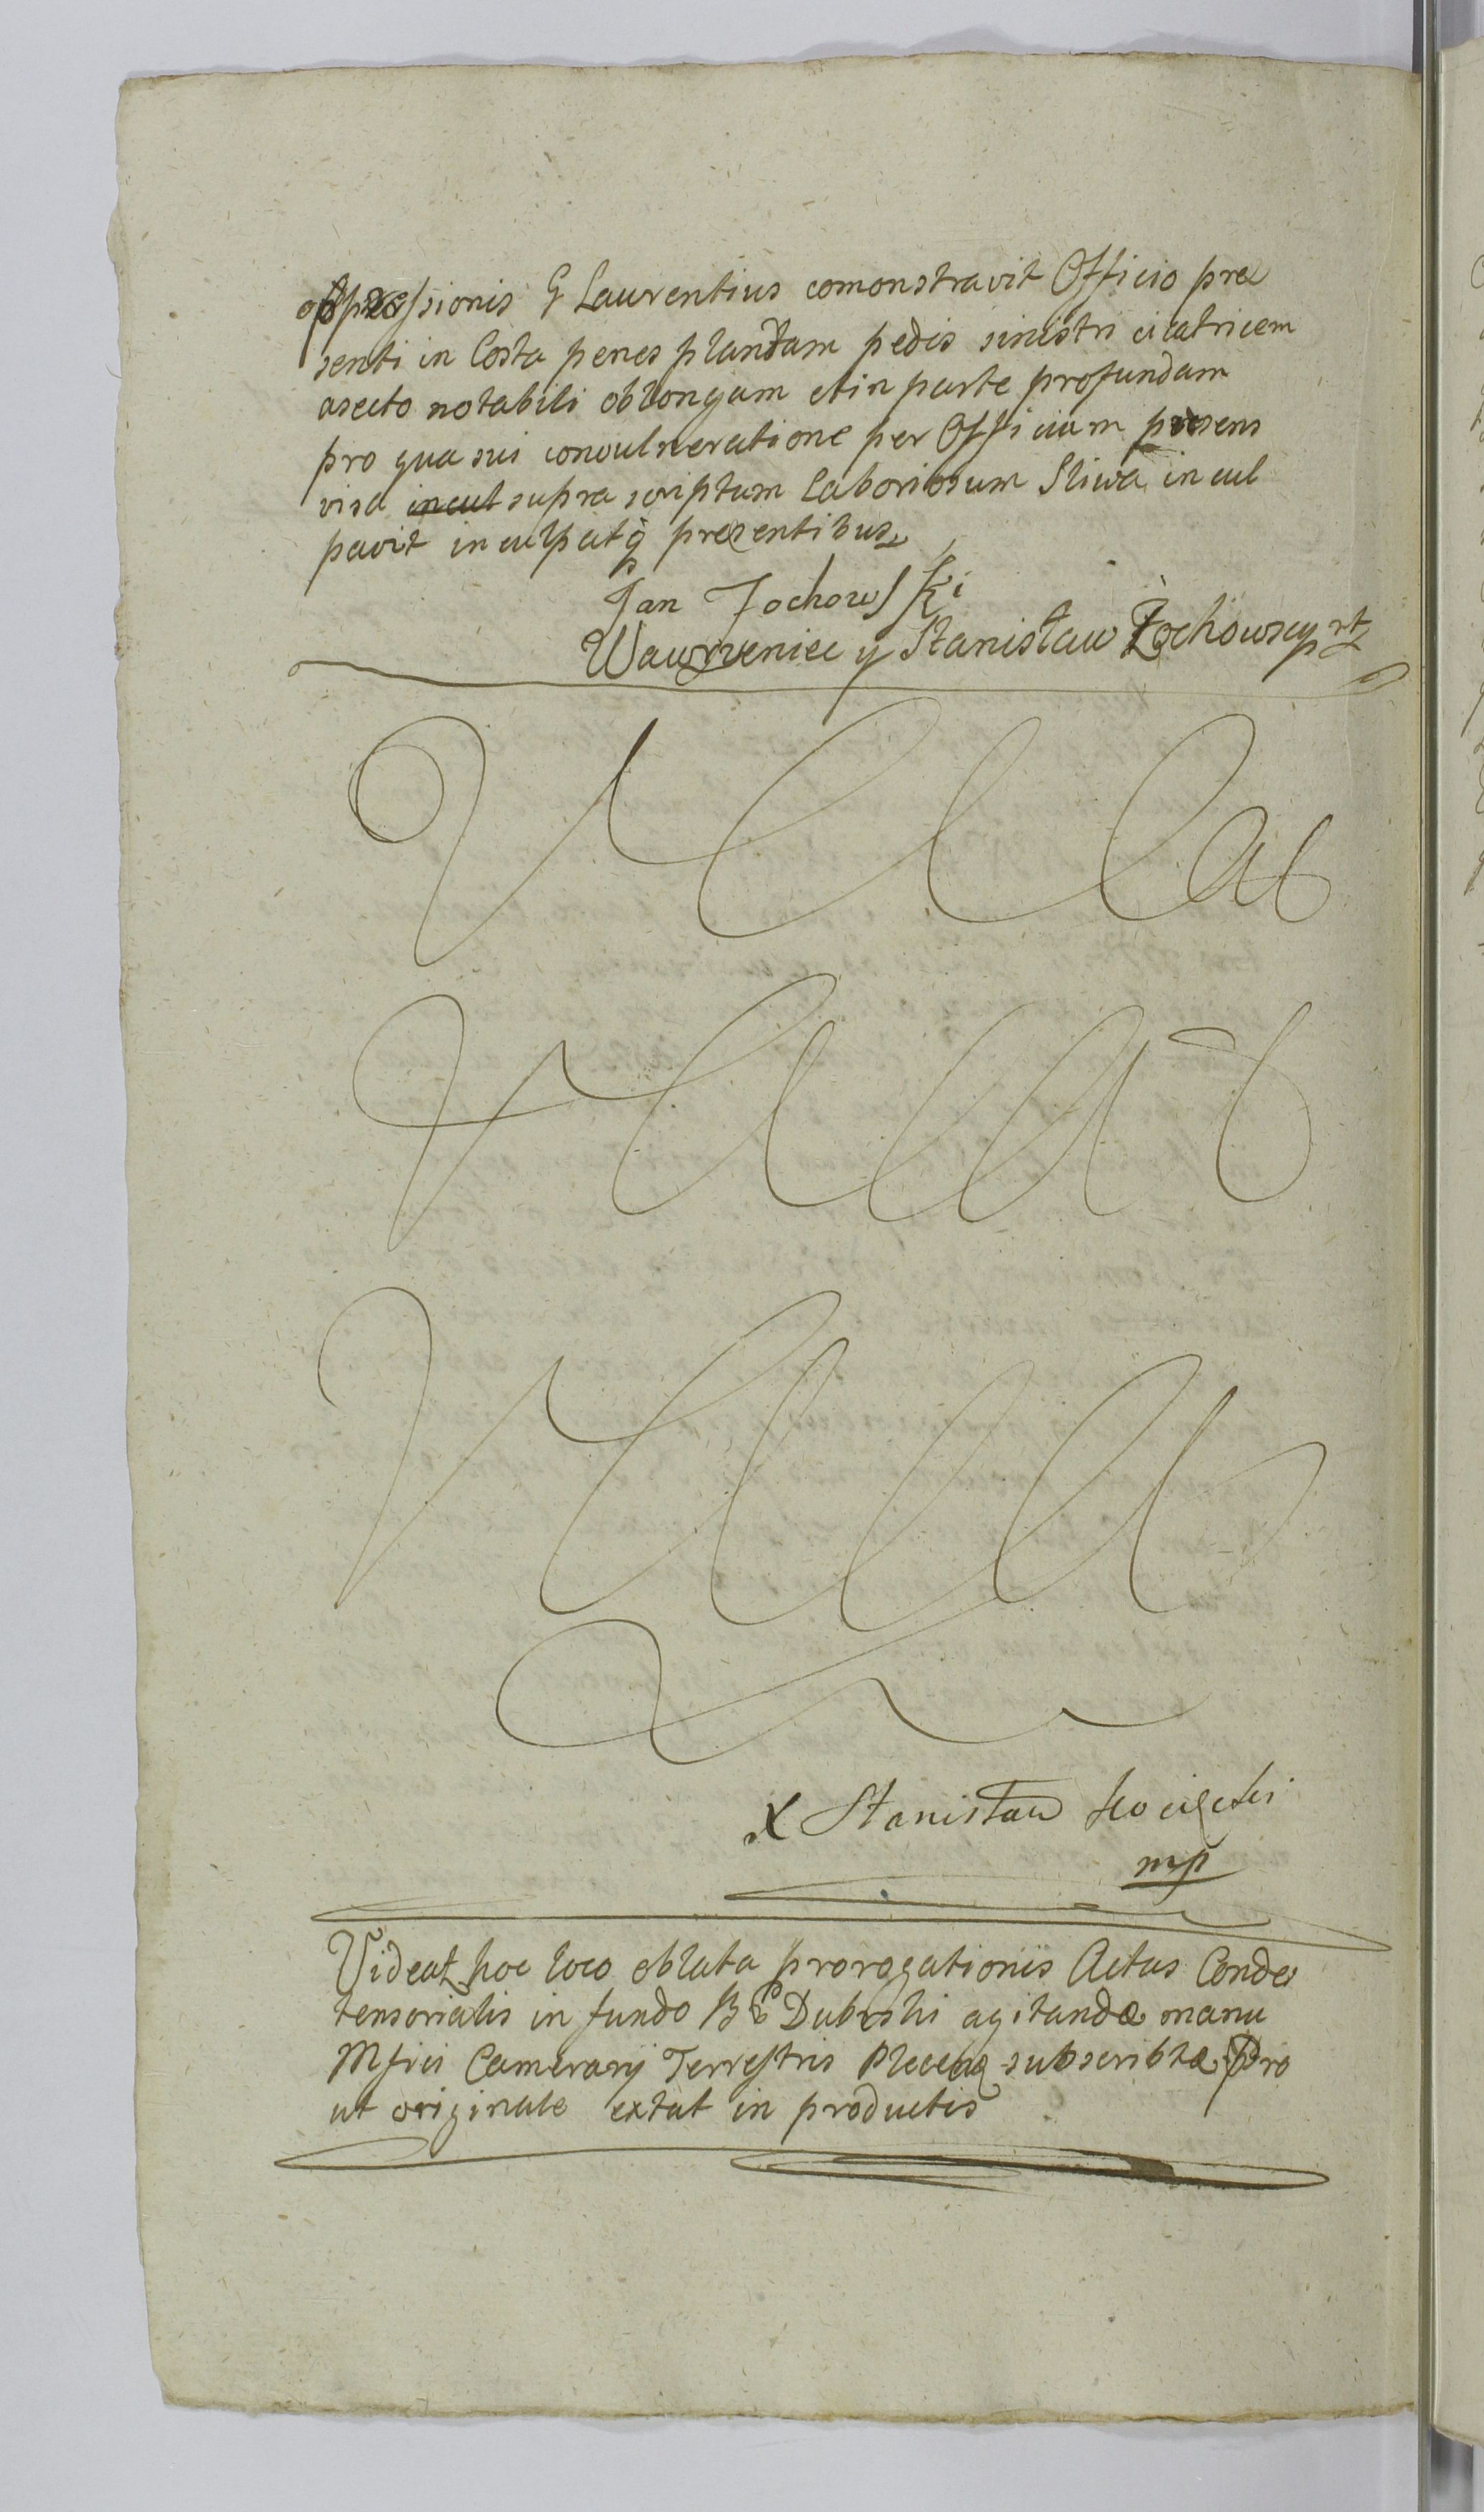 oppressionis G Laurentius comonstravit Officio præ
senti in Costa penes plandam pedis sinistri cicatricem
asecto notabili oblongam et in parte profundam
pro qua sui convulneratione per Officium præsens
visa incul supra scriptum Laboriosum Sliwa incul
pavit inculpatq præsentibus
Jan Zochowski
Wawrzeniec y Stanisław Żochowscy
X Stanisław
mp
Videat hoc loco oblata prorogationis Actus Conde
tensorialis in fundo Dubiski agitandæ manu
Mfici Camerarij Terrestris subscribtæ Pro
ut originale extat in productis